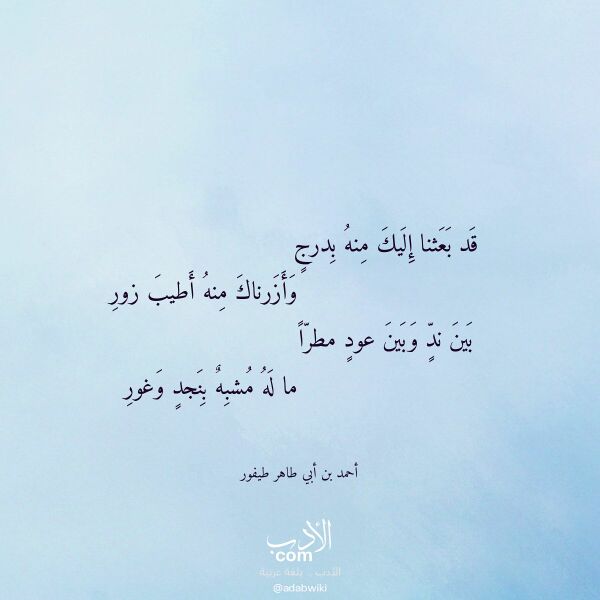 قَد بَعَثنا إِلَيكَ مِنهُ بِدرجٍ
وَأَزَرناكَ مِنهُ أَطيبَ زورِ
بَينَ ندٍّ وَبَينَ عودٍ مطرّاً
ما لَهُ مُشبِهٌ بِنَجدٍ وَغورِ
أحمد بن أبي طاهر طيفور
الأدب
com
الأدب .. بلغة عربية
@adabwiki